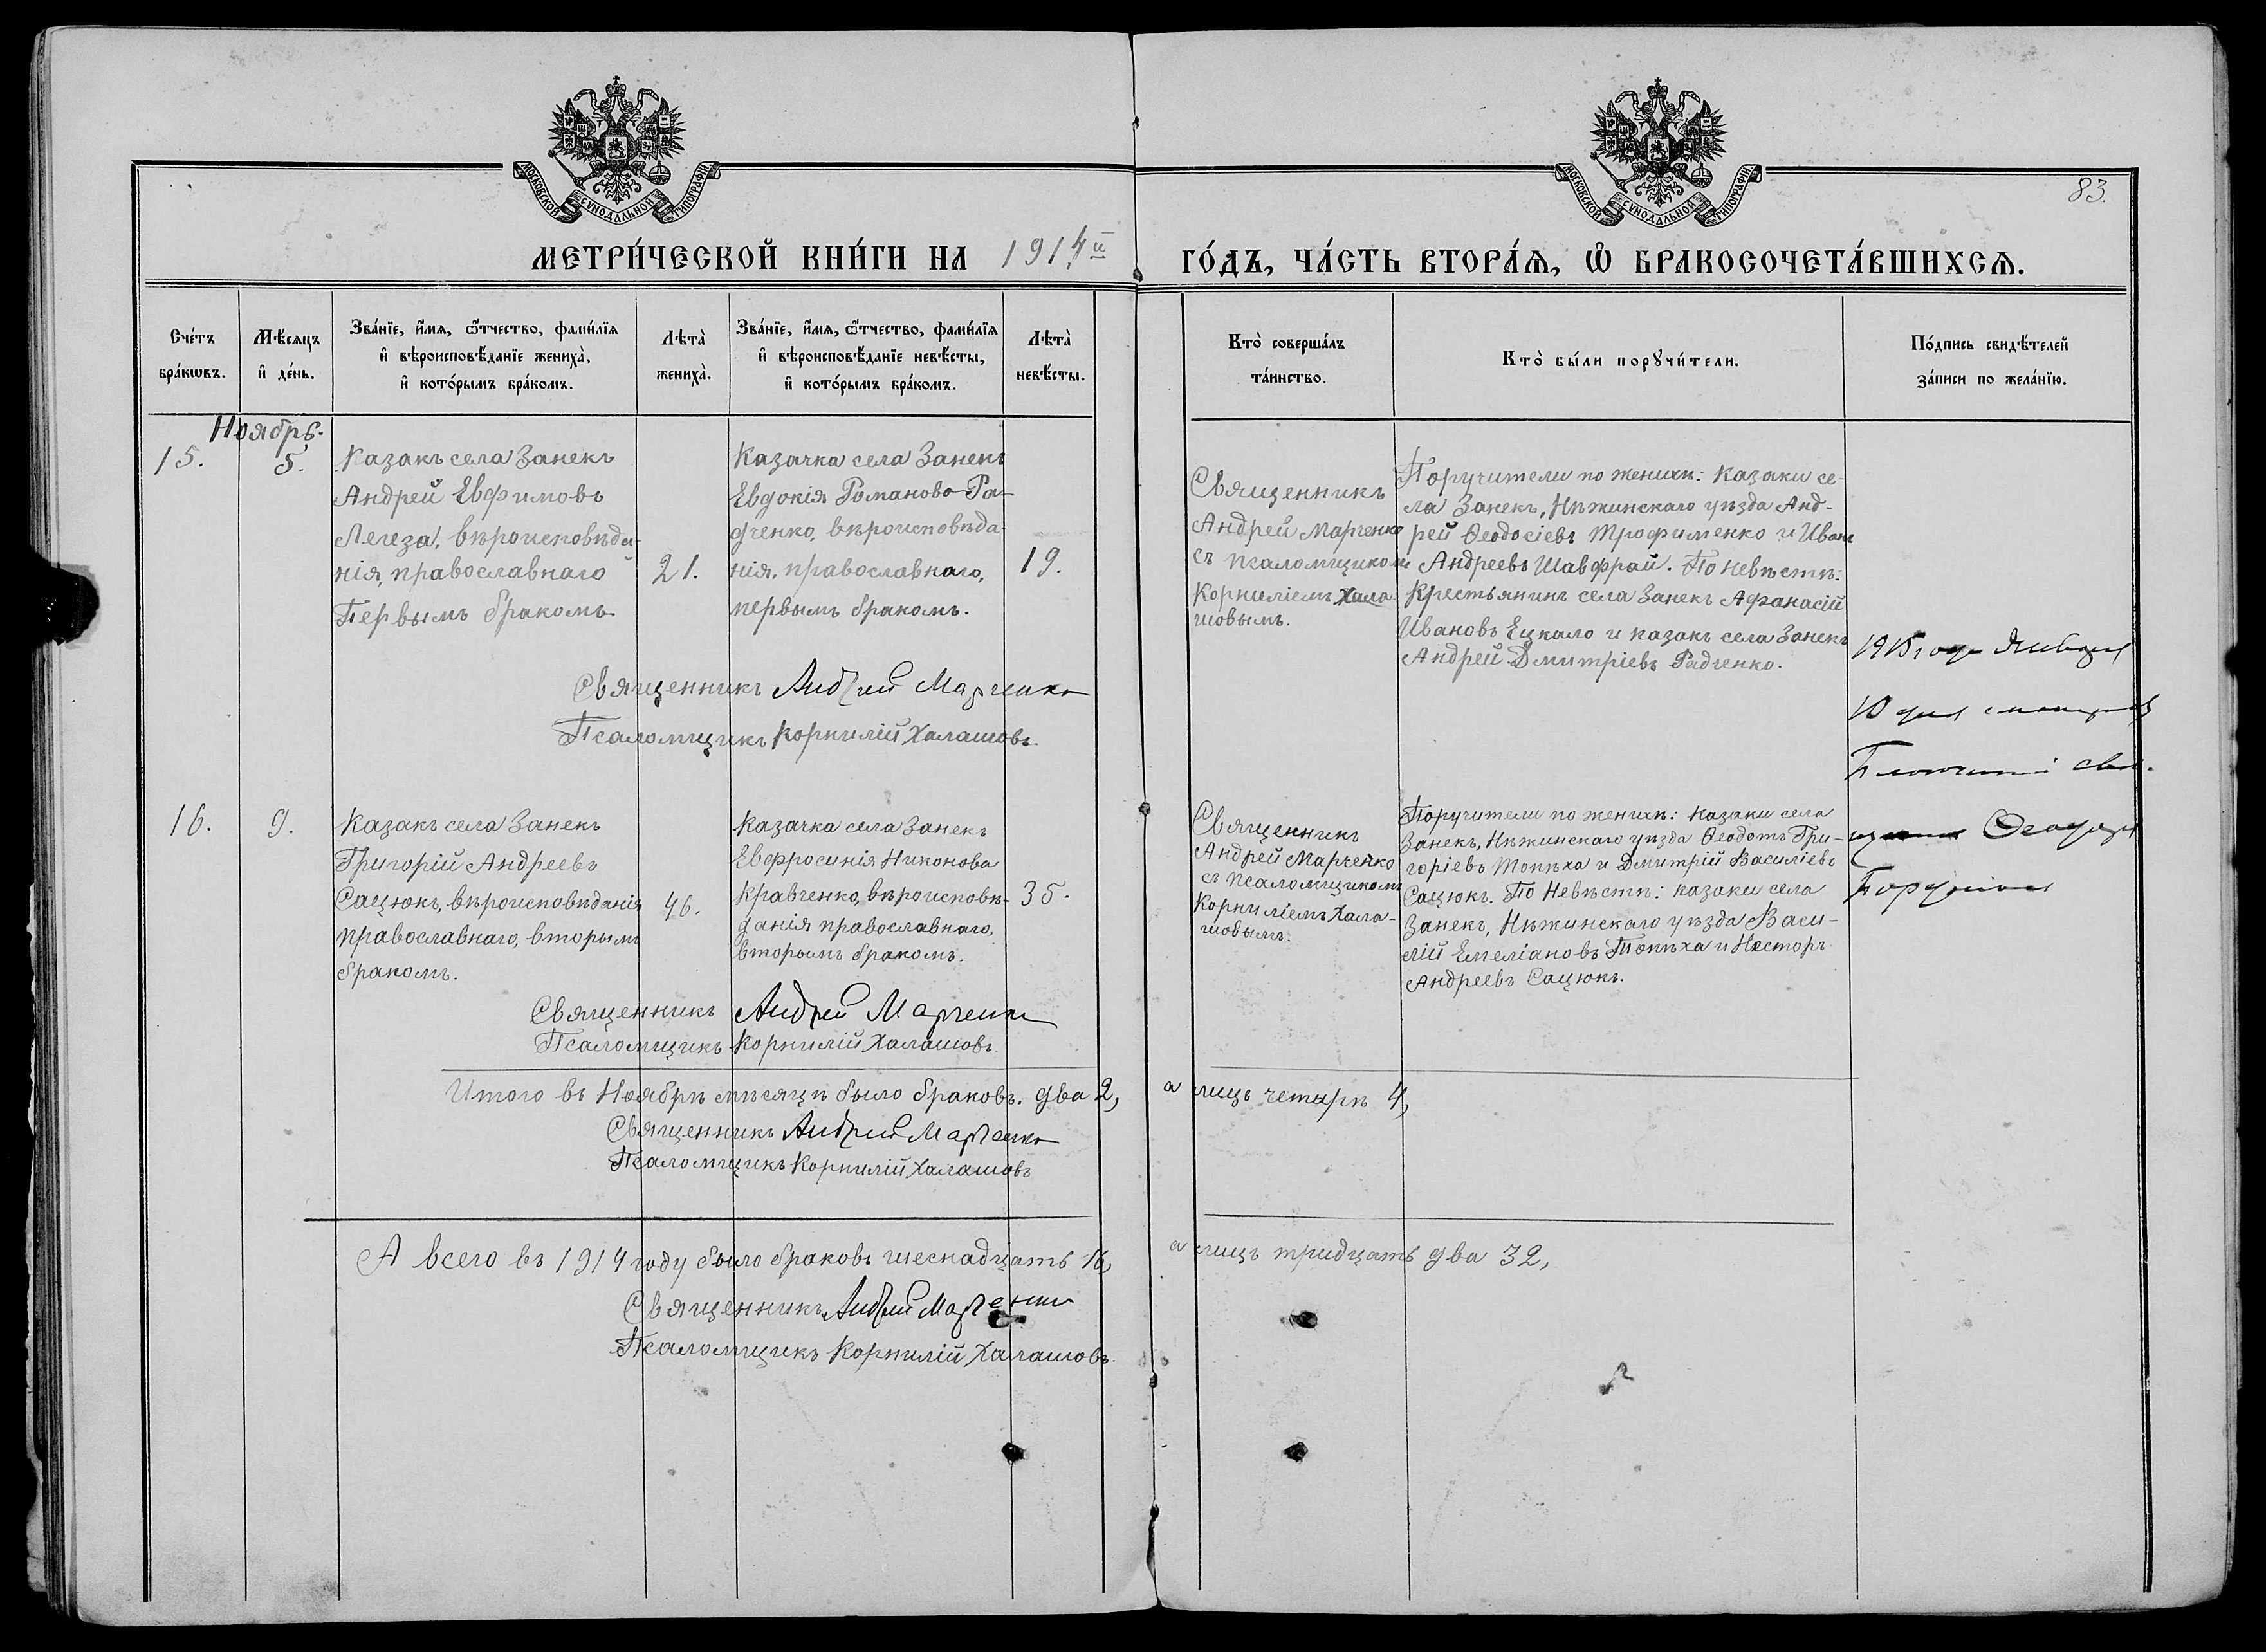 МОСКОВСКОЙ СУНОДАЛЬНОЙ ТИПОГРАФІИ
МОСКОВСКОЙ СУНОДАЛЬНОЙ ТИПОГРАФІИ
83.
МЕТРИ́ЧЕСКОЙ КНИ́ГИ НА 1914й
ГО́ДЪ, ЧА́СТЬ ВТОРА́Я, Ѡ БРАКОСОЧЕТА́ВШИХСЯ.
Сче́тъ бра́кѡвъ.
Мѣ́сяцъ и҆ де́нь.
Зва́нїе, и҆́мя, ѻ҆́тчество, фами́лїя и҆ вѣроисповѣ́данїе жениха̀, и҆ кото́рымъ бра́комъ.
Лѣта̀ жениха̀.
Зва́нїе, и҆́мя, ѻ҆́тчество, фами́лїя и҆ вѣроисповѣ́данїе невѣ́сты, и҆ кото́рымъ бра́комъ.
Лѣта̀ невѣ́сты.
Кто̀ соверша́лъ та́инство.
Кто̀ бы́ли порꙋчи́тели.
По́дпись свидѣ́телей за́писи по жела́нїю.
Ноябрь.
15.
5.
Казакъ села Занекъ
Андрей Евфимовъ
Легеза, вѣроисповѣда-
нія, православнаго
Первымъ бракомъ
21.
Казачка села Занекъ
Евдокія Романова Ра-
дченко, вѣроисповѣда-
нія, православнаго,
первымъ бракомъ.
19.
Священникъ
Андрей Марченко
съ псаломщикомъ
Корниліемъ Хала-
шовымъ.
Поручители по женихѣ: Казаки се-
ла Занекъ, Нѣжинскаго уѣзда Анд-
рей Ѳеодосіевъ Трофименко и Иванъ
Андреевъ Шавфрай. По невѣстѣ:
Крестьянинъ села Занекъ Афанасій
Ивановъ Ецкало и казакъ села Занекъ
Андрей Дмитріевъ Радченко.
Священникъ Андрей Марченко
Псаломщикъ Корнилій Халашовъ.
1915 года Января
10 дня
Ѳеодоръ
16.
9.
Казакъ села Занекъ
Григорій Андреевъ
Сацюкъ, вѣроисповѣданія
православнаго, вторымъ
бракомъ.
46.
Казачка села Занекъ
Евфросинія Никонова
Кравченко, вѣроисповѣ-
данія православнаго,
вторымъ бракомъ.
35.
Священникъ
Андрей Марченко
съ псаломщикомъ
Корниліемъ Хала-
шовымъ.
Поручители по женихѣ: казаки села
Занекъ, Нѣжинскаго уѣзда Ѳеодотъ Гри-
горіевъ Топѣха и Дмитрій Василіевъ
Сацюкъ. По Невѣстѣ: казаки села
Занекъ, Нѣжинскаго уѣзда Васи-
лій Емеліановъ Топѣха и Несторъ
Андреевъ Сацюкъ.
Священникъ Андрей Марченко
Псаломщикъ Корнилій Халашовъ.
Итого въ Ноябрѣ мѣсяцѣ было браковъ. два 2, а лицъ четырѣ 4,
Священникъ Андрей Марченко
Псаломщикъ Корнилій Халашовъ
А всего въ 1914 году было браковъ шеснадцать 16, а лицъ тридцать два 32,
Священникъ Андрей Марченко
Псаломщикъ Корнилій Халашовъ.